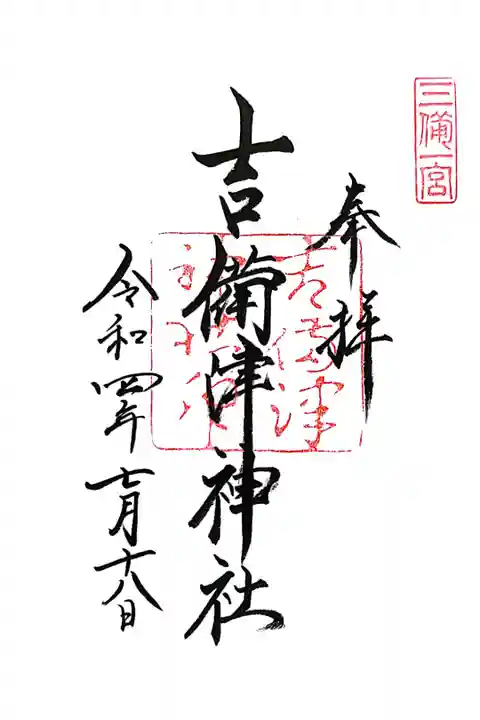 三備一宮
奉拝
吉備津
吉備津神社
令和四年七月十八日